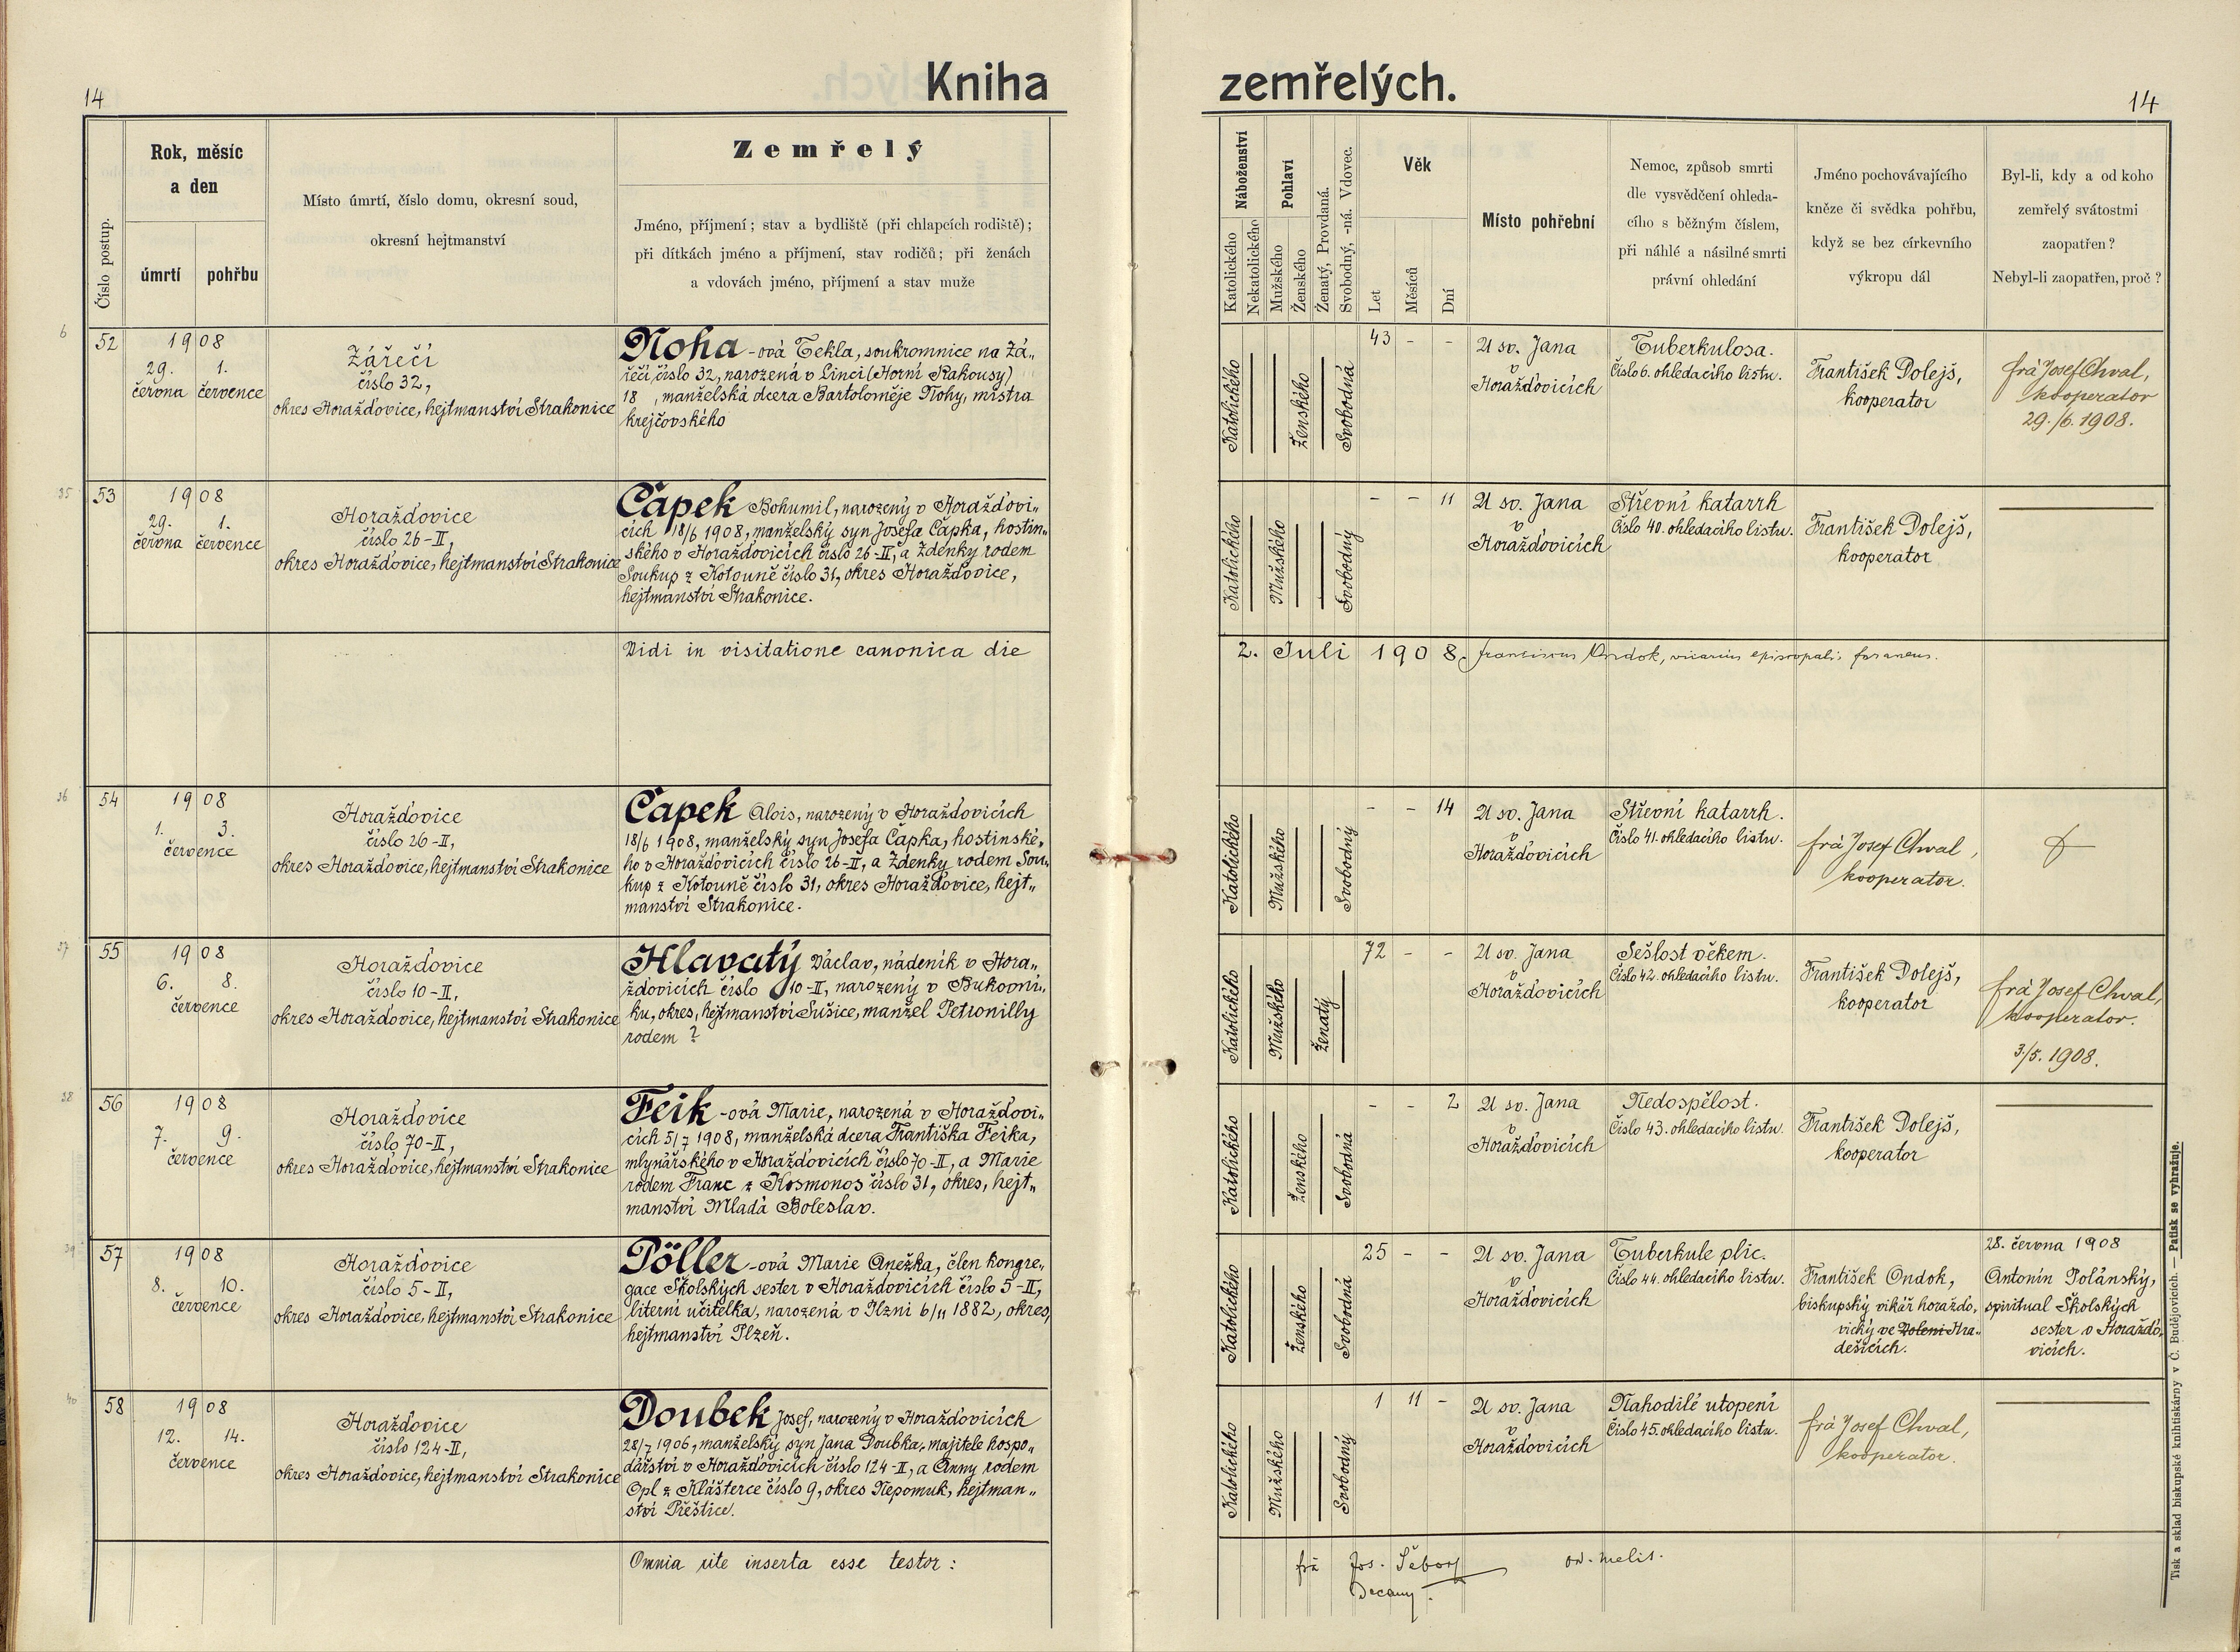 14
Kniha
zemřelých.
14
Číslo postup.
Rok, měsíc
a den
úmrtí
pohřbu
Místo úmrtí, číslo domu, okresní soud,
okresní hejtmanství
Zemřelý
Jméno, příjmení; stav a bydliště (při chlapcích rodiště);
při dítkách jméno a příjmení, stav rodičů; při ženách
a vdovách jméno, příjmení a stav muže
Náboženství
Katolického
Nekatolického
Pohlaví
Mužského
Ženského
Ženatý, Provdaná.
Svobodný, -ná. Vdovec.
Věk
Let
Měsíců
Dní
Místo pohřební
Nemoc, způsob smrti
dle vysvědčení ohleda-
cího s běžným číslem,
při náhlé a násilné smrti
právní ohledání
Jméno pochovávajícího
kněze či svědka pohřbu,
když se bez církevního
výkropu dál
Byl-li, kdy a od koho
zemřelý svátostmi
zaopatřen?
Nebyl-li zaopatřen, proč?
6
52
1908
29. 1.
června července
Zářečí
číslo 32,
okres Horažďovice, hejtmanství Strakonice
Noha-ová Tekla, soukromnice na Zá„
řečí, číslo 32, narozená v Linci (Horní Rakousy)
18 , manželská dcera Bartoloměje Nohy, mistra
krejčovského
Katolického
Ženského
Svobodná
43 - -
U sv. Jana
v
Horažďovicích
Tuberkulosa.
Číslo 6. ohledacího listu.
František Dolejš,
kooperator
frá Josef Chval,
kooperator
29./6. 1908.
35
53
1908
29. 1.
června července
Horažďovice
číslo 26-II,
okres Horažďovice, hejtmanství Strakonice
Čapek Bohumil, narozený v Horažďovi„
cích 18/6 1908, manželský syn Josefa Čapka, hostin„
ského v Horažďovicích číslo 26-II, a Ždenky rodem
Soukup z Kotouně číslo 31, okres Horažďovice,
hejtmanství Strakonice.
Katolického
Mužského
Svobodný
- - 11
U sv. Jana
v
Horažďovicích
Střevní katarrh
Číslo 40. ohledacího listu.
František Dolejš,
kooperator
Vidi in visitatione canonica die
2. Juli 1908. Franciscus Ondok, vicarius episcopalis foraneus.
36
54
1908
1. 3.
července
Horažďovice
číslo 26-II,
okres Horažďovice, hejtmanství Strakonice
Čapek Alois, narozený v Horažďovicích
18/6 1908, manželský syn Josefa Čapka, hostinské„
ho v Horažďovicích číslo 26-II, a Ždenky rodem Sou„
kup z Kotouně číslo 31, okres Horažďovice, hejt„
manství Strakonice.
Katolického
Mužského
Svobodný
- - 14
U sv. Jana
v
Horažďovicích
Střevní katarrh.
Číslo 41. ohledacího listu.
frá Josef Chval,
kooperator.
37
55
1908
6. 8.
července
Horažďovice
číslo 10-II,
okres Horažďovice, hejtmanství Strakonice
Hlavatý Václav, nádeník v Hora„
žďovicích číslo 10-II, narozený v Bukovní„
ku, okres, hejtmanství Sušice, manžel Petronilly
rodem ?
Katolického
Mužského
Ženatý
72 - -
U sv. Jana
v
Horažďovicích
Sešlost věkem.
Číslo 42. ohledacího listu.
František Dolejš,
kooperator
frá Josef Chval,
kooperator.
3/5. 1908.
38
56
1908
7. 9.
července
Horažďovice
číslo 70-II,
okres Horažďovice, hejtmanství Strakonice
Feik-ová Marie, narozená v Horažďovi„
cích 5/7 1908, manželská dcera Františka Feika,
mlynářského v Horažďovicích číslo 70-II, a Marie
rodem Franc z Kosmonos číslo 31, okres, hejt„
manství Mladá Boleslav.
Katolického
Ženského
Svobodná
- - 2
U sv. Jana
v
Horažďovicích
Nedospělost.
Číslo 43. ohledacího listu.
František Dolejš,
kooperator
39
57
1908
8. 10.
července
Horažďovice
číslo 5-II,
okres Horažďovice, hejtmanství Strakonice
Pöller-ová Marie Anežka, člen kongre„
gace Školských sester v Horažďovicích číslo 5-II,
literní učitelka, narozená v Plzni 6/11 1882, okres,
hejtmanství Plzeň.
Katolického
Ženského
Svobodná
25 - -
U sv. Jana
v
Horažďovicích
Tuberkule plic.
Číslo 44. ohledacího listu.
František Ondok,
biskupský vikář horažďo„
vický ve Volení Hra„
dešicích.
28. června 1908
Antonín Polánský,
spirituál Školských
sester v Horažďo„
vicích.
40
58
1908
12. 14.
července
Horažďovice
číslo 124-II,
okres Horažďovice, hejtmanství Strakonice
Doubek Josef, narozený v Horažďovicích
28/7 1906, manželský syn Jana Doubka, majitele hospo„
dářství v Horažďovicích číslo 124-II, a Anny rodem
Opl z Klášterce číslo 9, okres Nepomuk, hejtman„
ství Přeštice.
Katolického
Mužského
Svobodný
1 11 -
U sv. Jana
v
Horažďovicích
Nahodilé utopení
Číslo 45. ohledacího listu.
frá Josef Chval,
kooperator.
Omnia rite inserta esse testor:
frá Jos. Šebor
or. melit.
Decany.
Tisk a sklad biskupské knihtiskárny v Č. Budějovicích. — Patisk se vyhražuje.